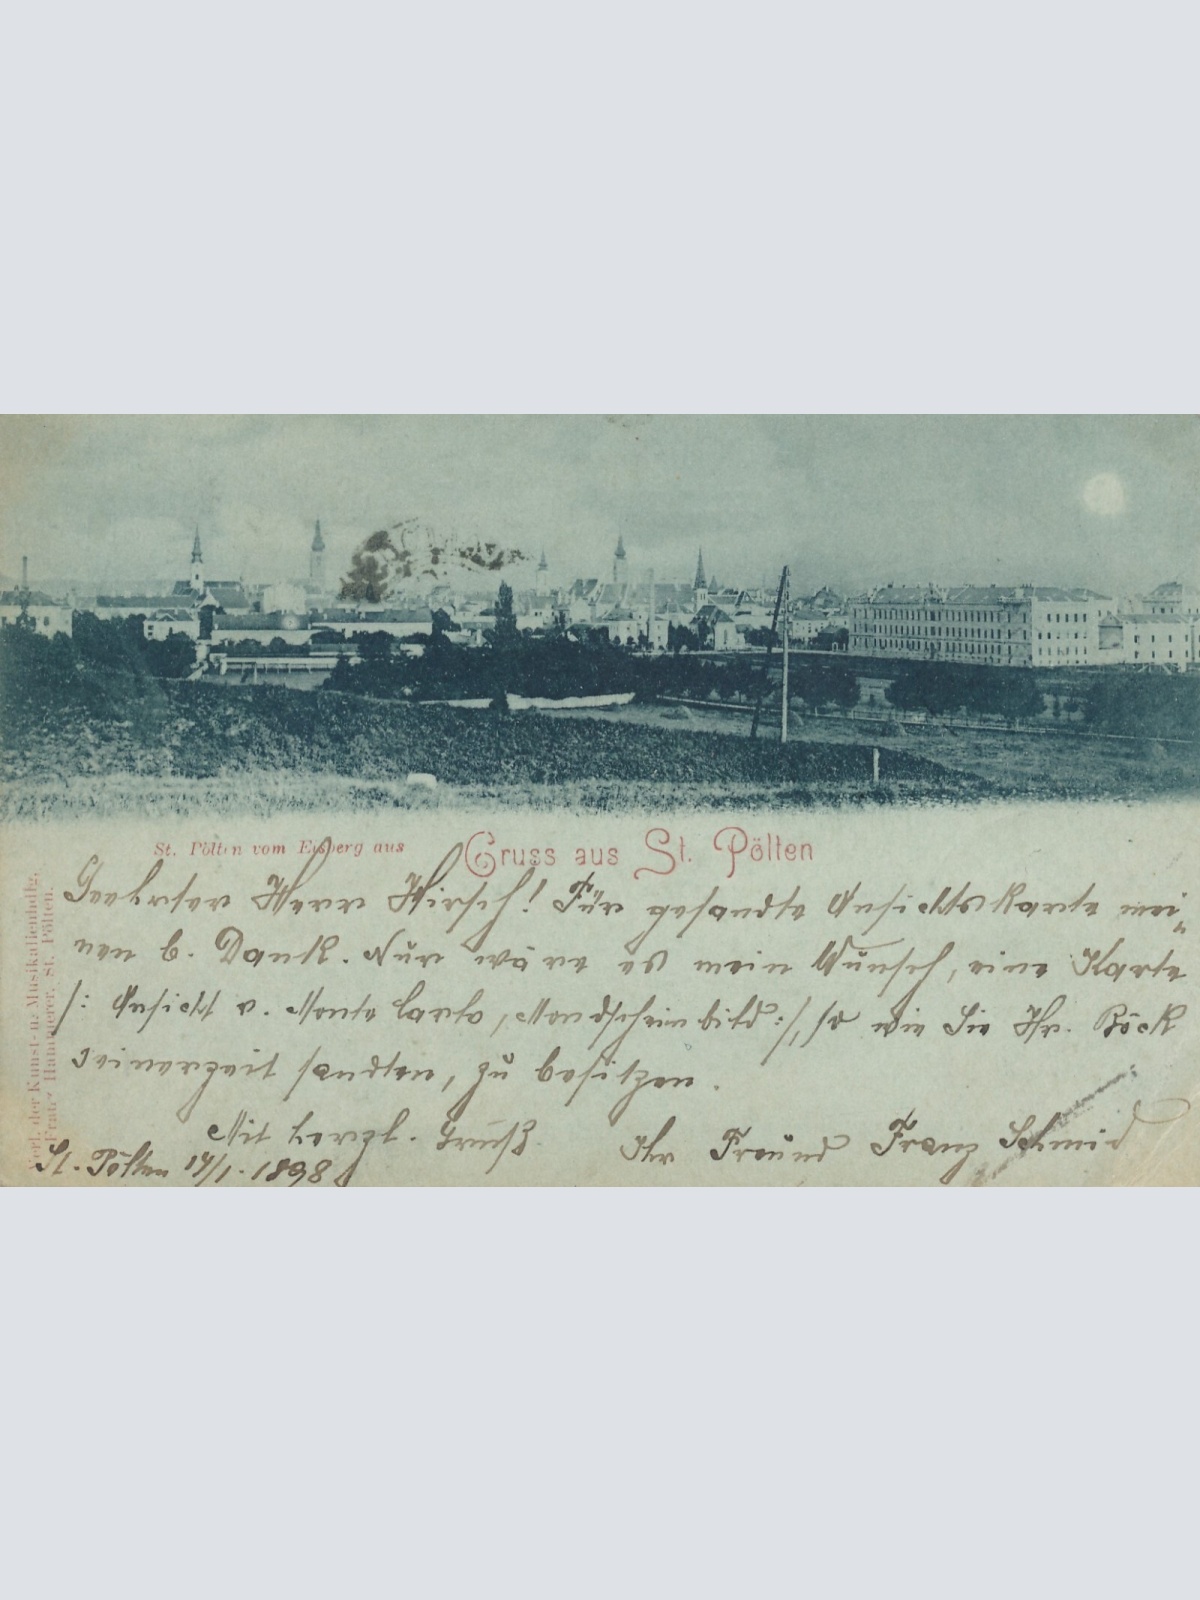 St. Pölten vom Eisberg aus
Gruss aus St. Pölten
Geehrter Herr Hirsch! Für gesandte Ansichtskarte mei„
nen b. Dank. Nur wäre es mein Wunsch, eine Karte
/: Ansicht v. Monte Carlo, Mondscheinbild :/, so wie Sie Hr. Böck
seinerzeit sandten, zu besitzen.
Mit herzl. Gruß Ihr Freund Franz Schmid
St. Pölten 14/1. 1898
Verl. der Kunst- u. Musikalienhdlg.
Franz Hammerer, St. Pölten.